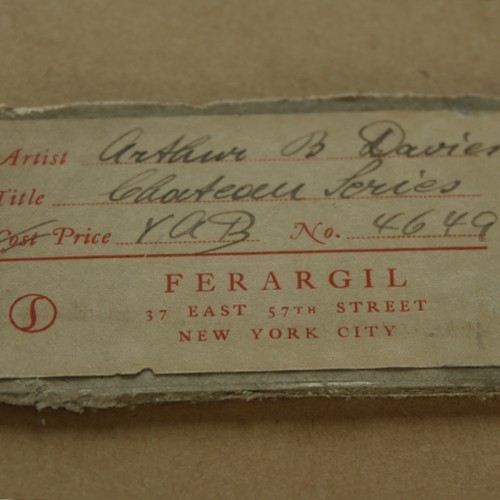 Artist Arthur B Davies
Title Chateau Series
Cost Price YAB No. 4649
FERARGIL
37 EAST 57TH STREET
NEW YORK CITY